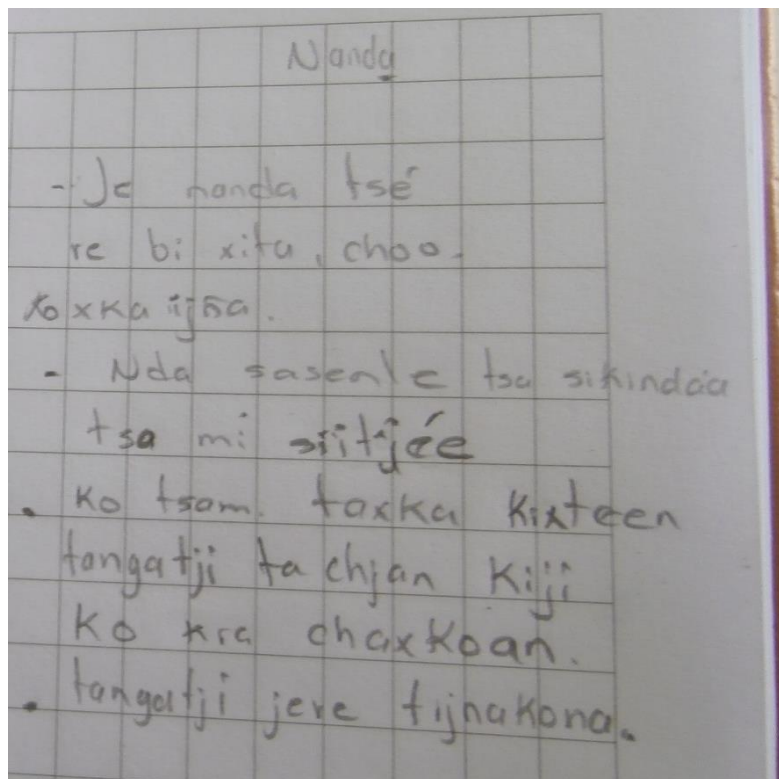 Nanda
- Je nanda tsé
re bi xita, choo.
xo xka ijña.
- Nda sasenle tsa sikindaa
tsa mi siitjée
. Ko tsam. taxka kixteen
tangatji ta chjan kiji
ko kra chaxkoan.
. tangatji jere tijnakona.